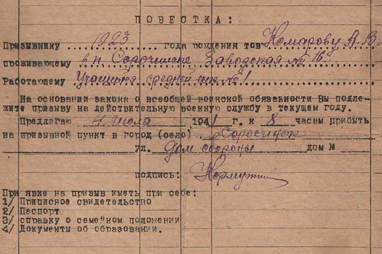 ПОВЕСТКА:
Призывнику 1923 года рождения тов Комарову А.В.
проживающему в п. Сорочинске Заводская № 16
Работающему Учащийся средней шк №1
На основании закона о всеобщей воинской обязанности Вы подле-
жите призыву на действительную военную службу в текущем году.
Предлагаю 4 июля 1941 г. и 8 часам прибыть
на призывной пункт в город (село) Сорочинск
ул. Дом обороны дом №
подпись:
При явке на призыв иметь при себе:
1/ Приписное свидетельство
2/ Паспорт
3/ справку о семейном положении
4/ Документы об образовании.